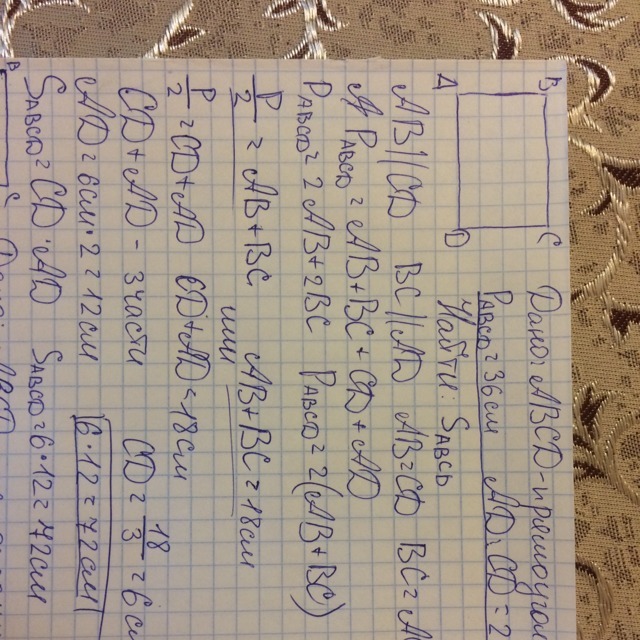 B C
A D
Дано: ABCD - прямоугол
PABCD = 36см AD:CD = 2
Найти: SABCD
AB||CD BC||AD AB=CD BC=A
PABCD = AB+BC+CD+AD
PABCD = 2AB+2BC PABCD = 2(AB+BC)
P/2 = AB+BC или AB+BC=18см
P/2 = CD+AD CD+AD=18см
CD+AD - 3 части CD = 18/3 = 6 см
AD = 6см·2 = 12см 6·12=72см
SABCD = CD·AD SABCD = 6·12 = 72см
B C